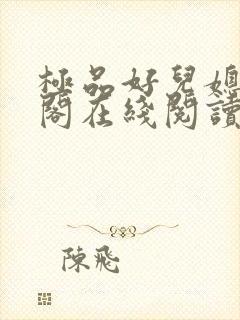 極品好兒媳
閣在綫閱讀
陳飛